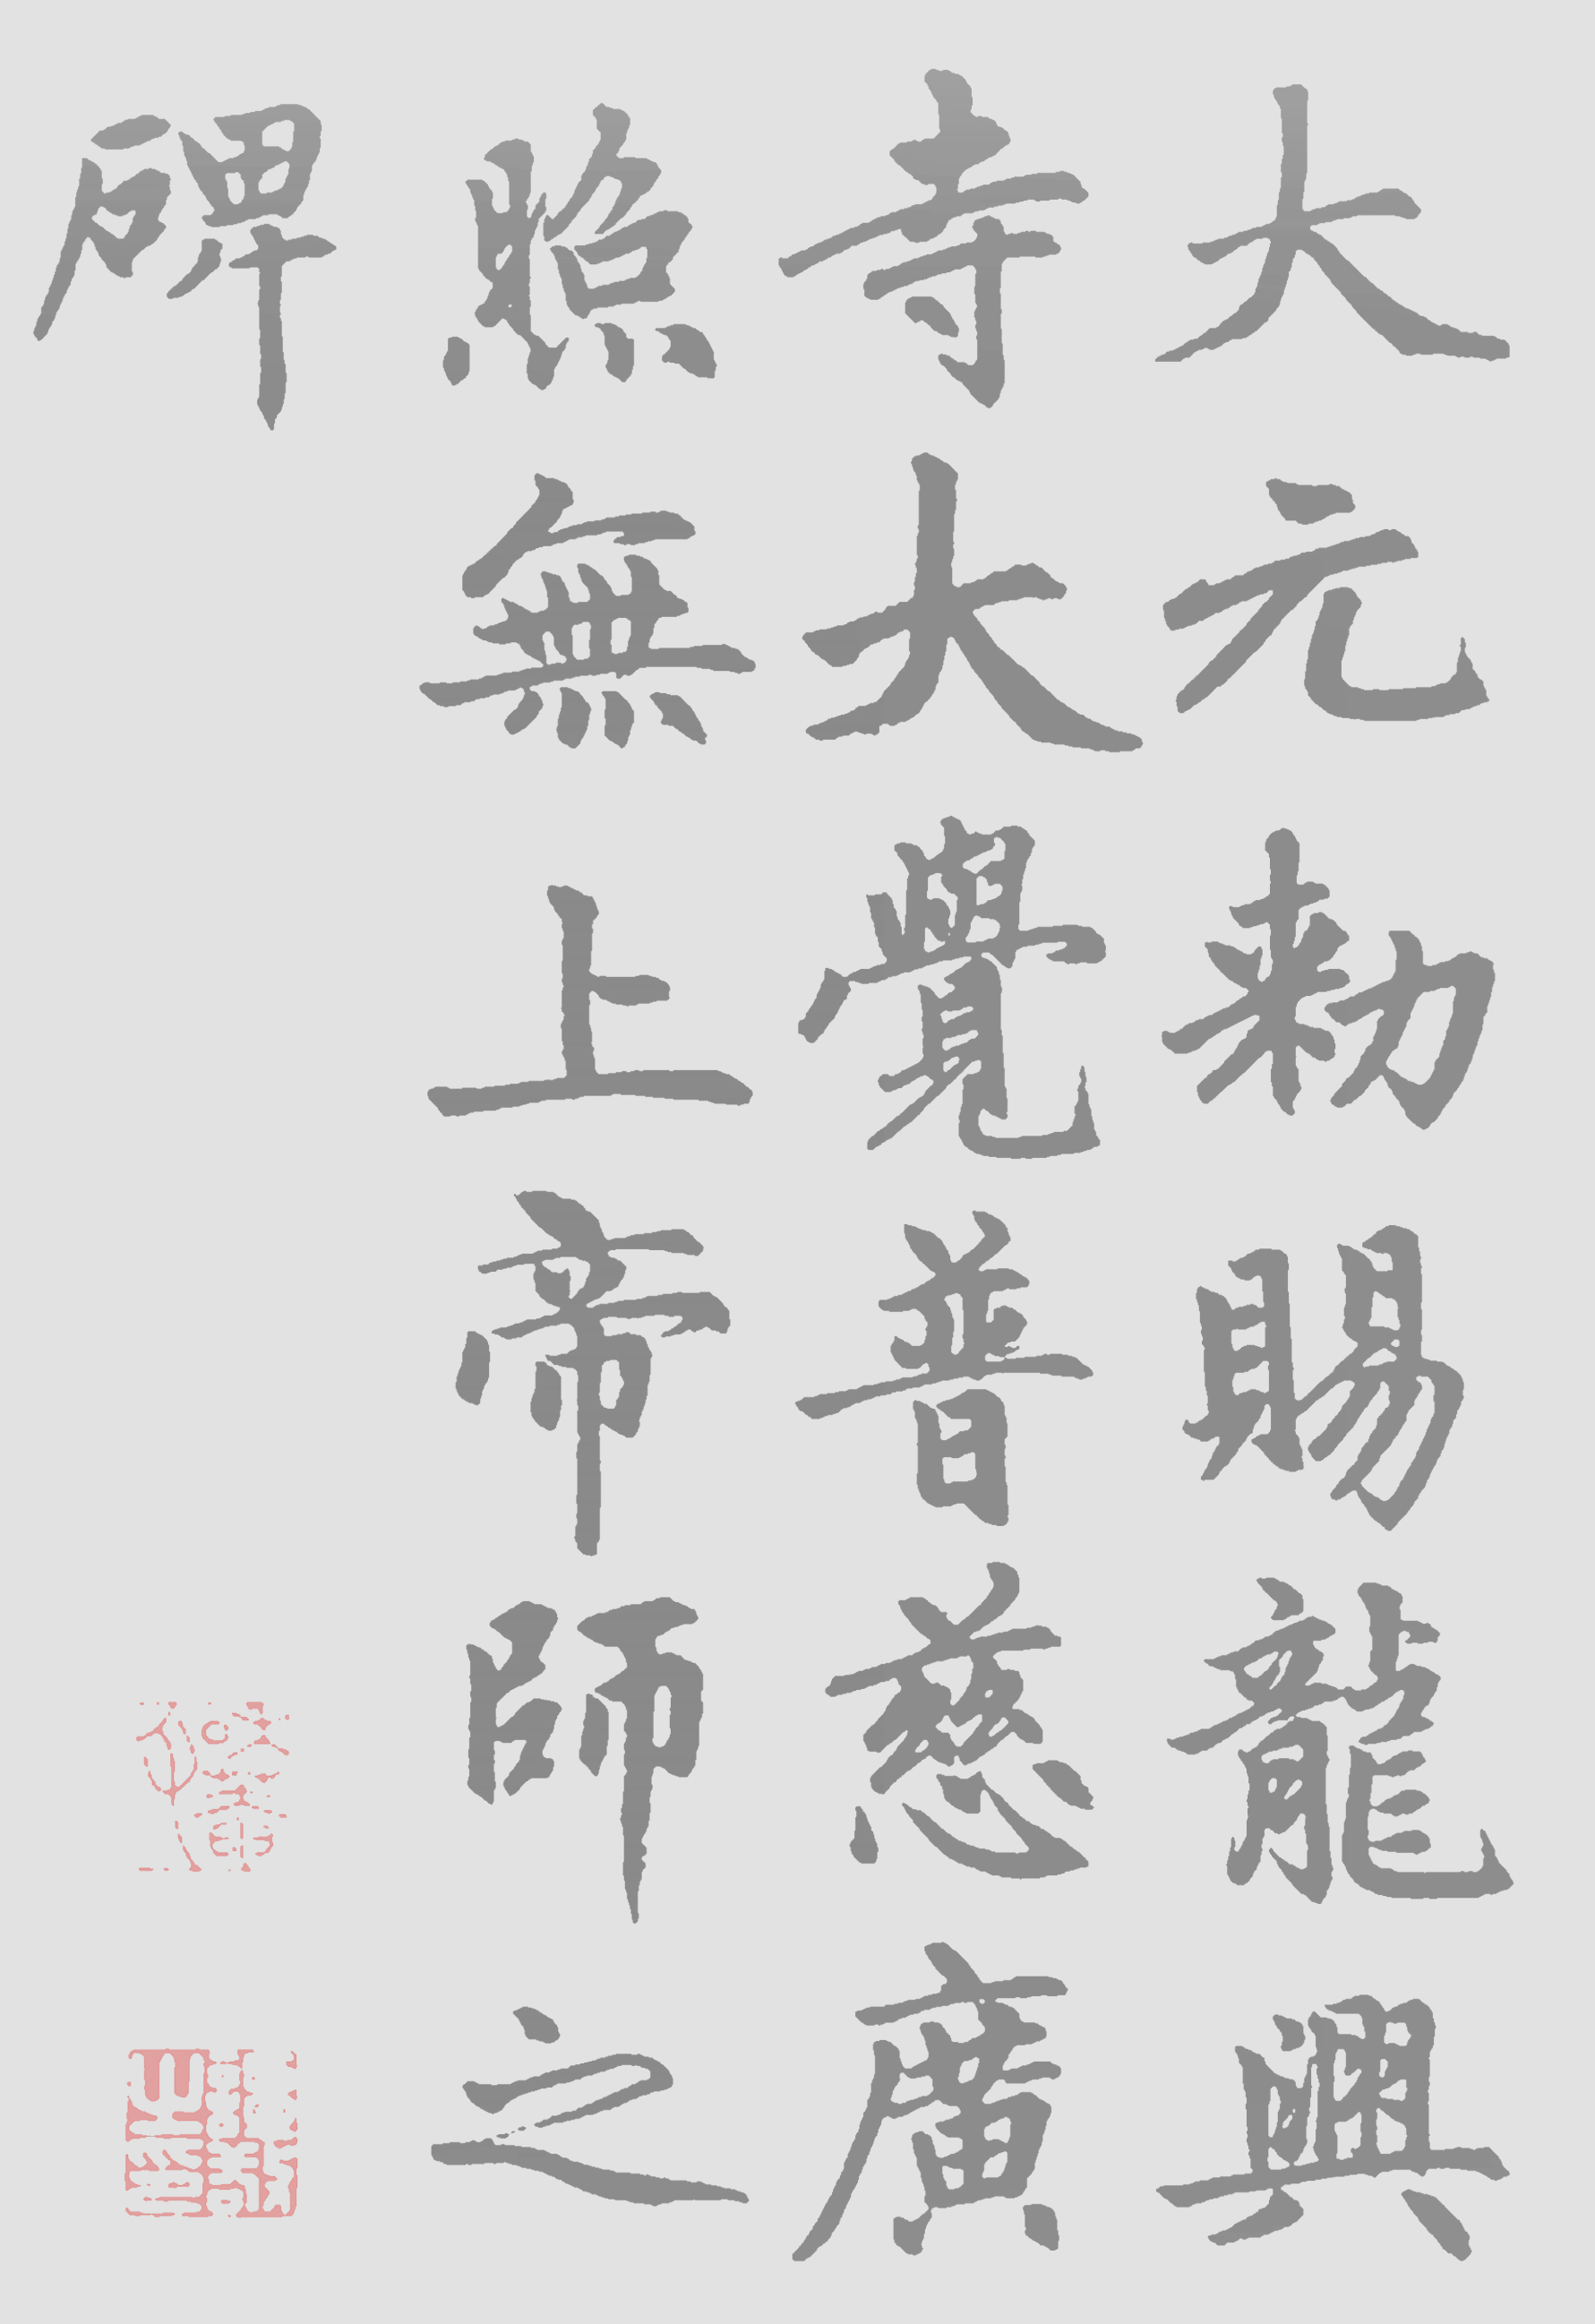 大元勑賜龍興
寺大覺普慈廣
照無上帝師之
碑